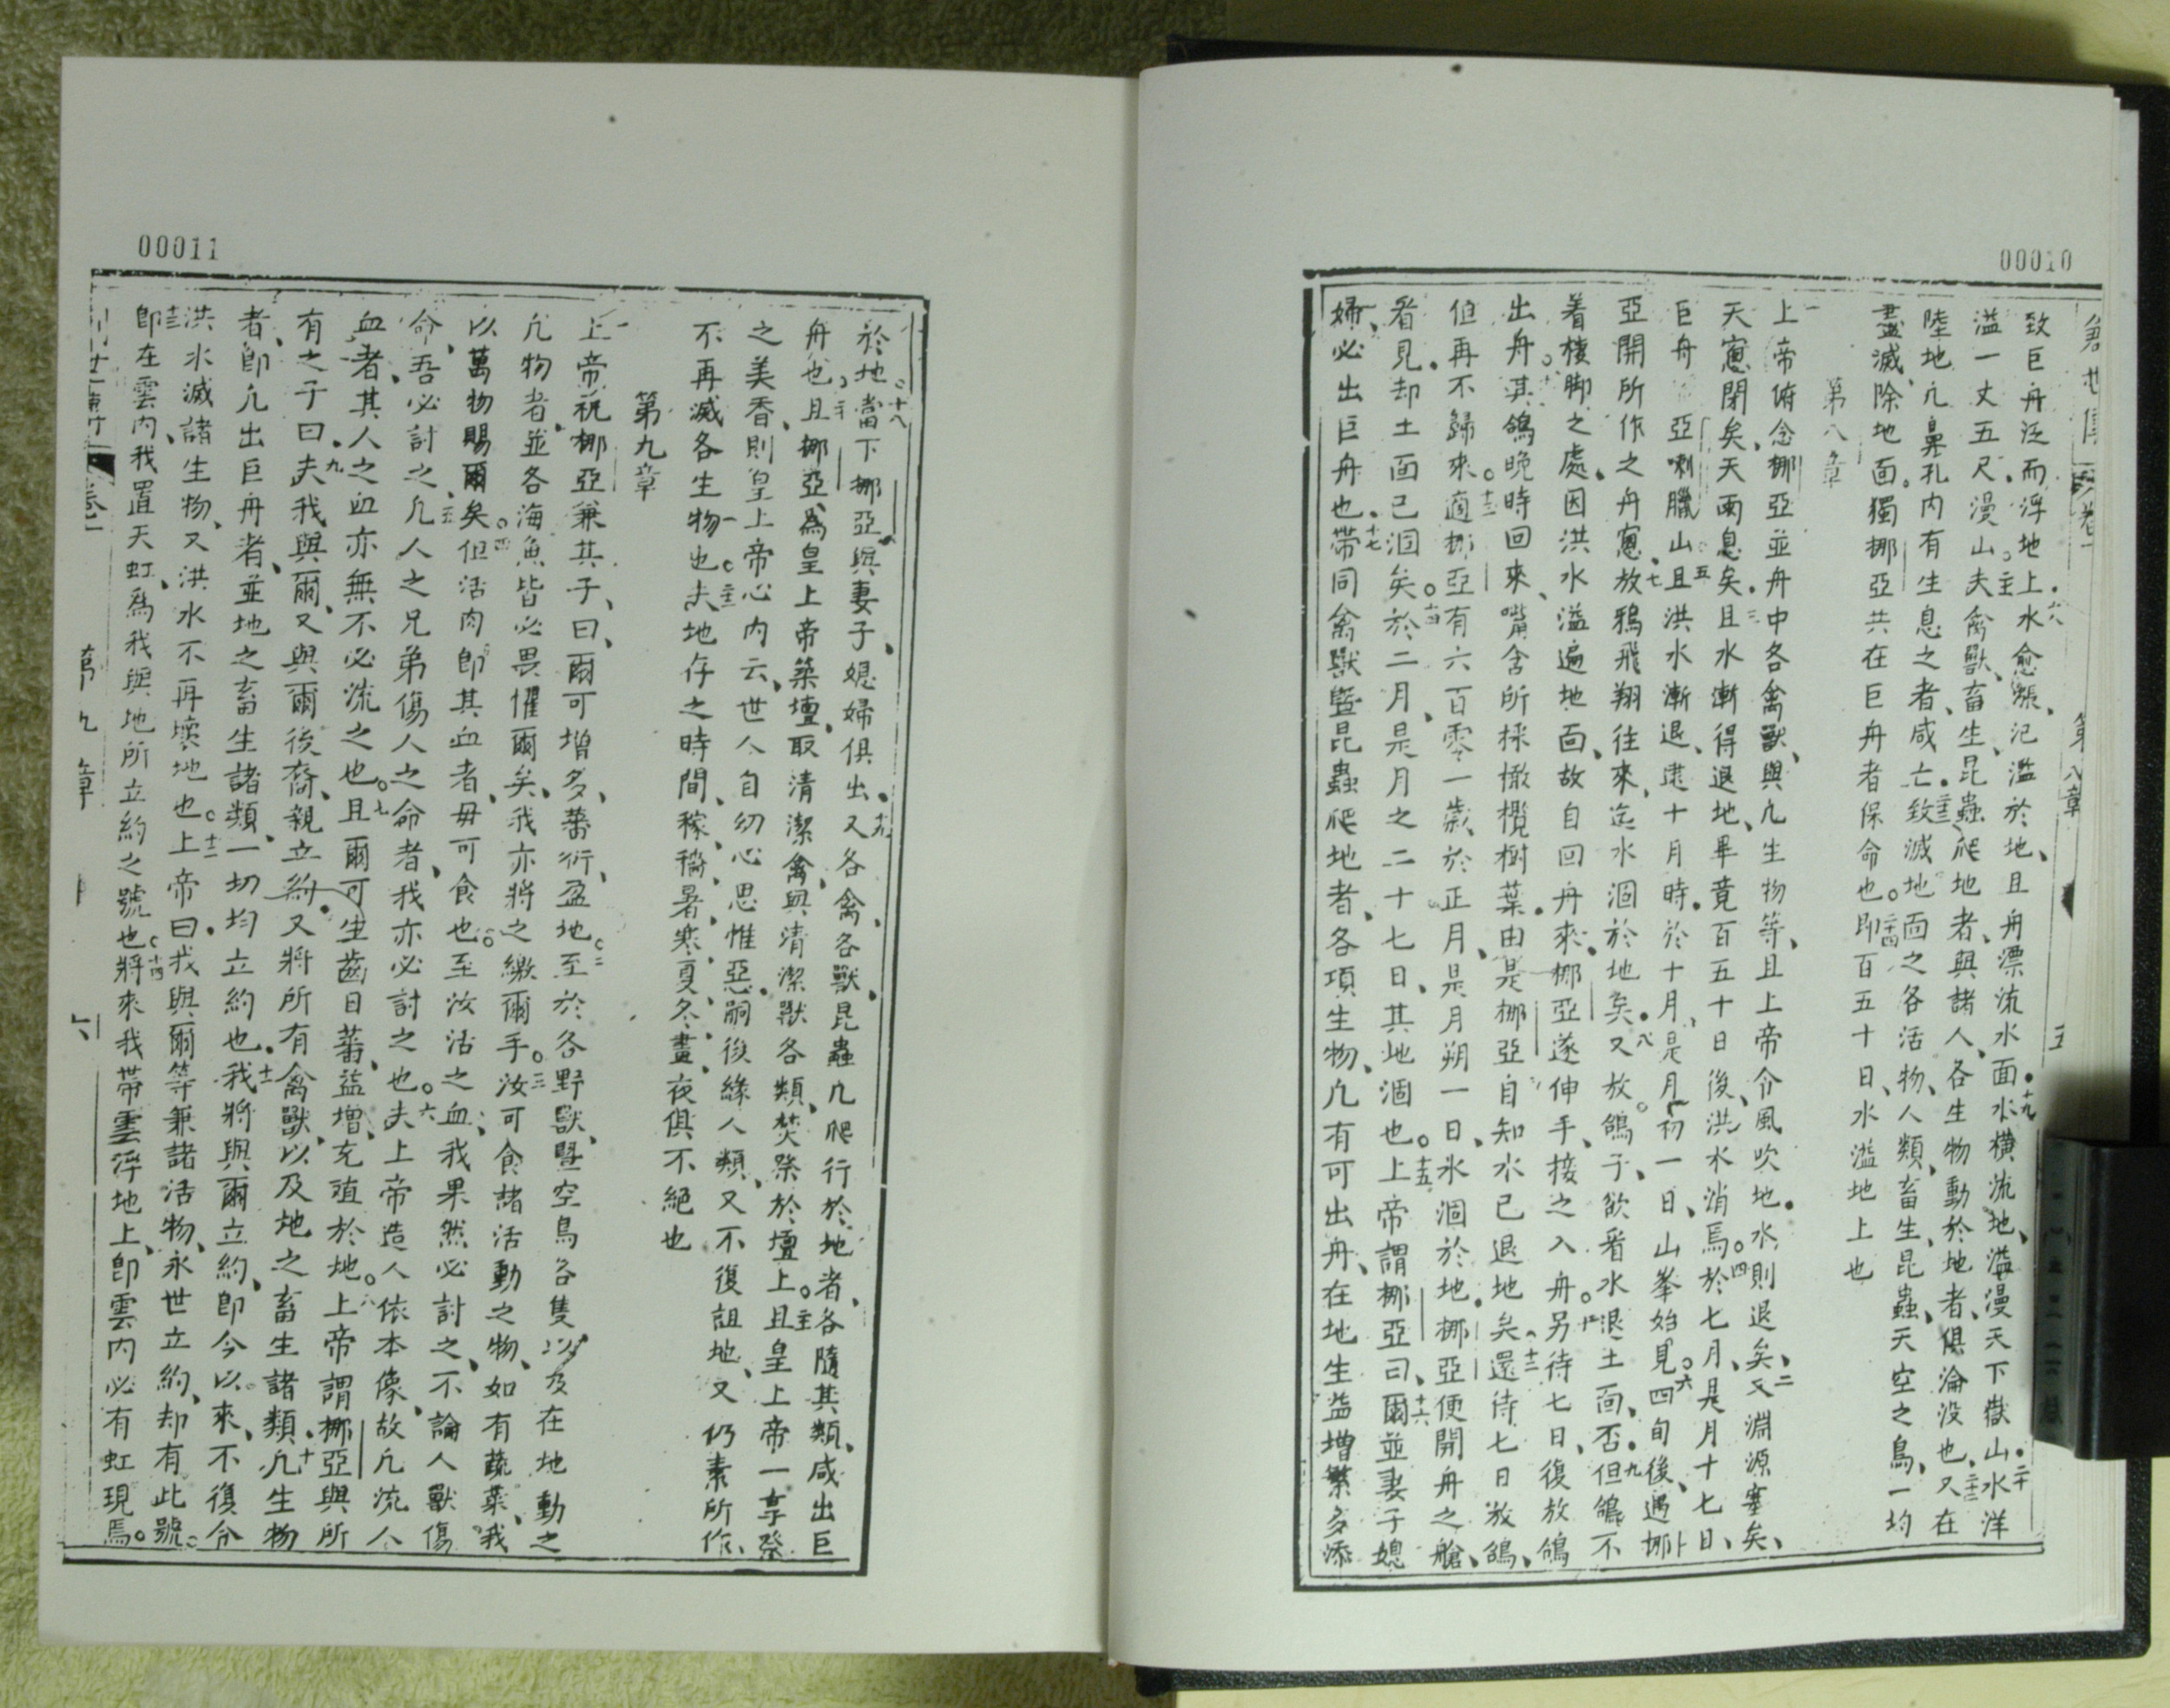 00010
卷一 第八章 五
致巨舟泛而浮地上水愈漲氾濫於地、且舟漂流水面十九水橫流地、溢漫天下嶽山二十水洋
溢一丈五尺漫山夫禽獸、畜生、昆蟲爬地者、與諸人、各生物動於地者、俱淪没也、又在
陸地凢鼻孔内有生息之者、咸亡致滅地面之各活物、人類、畜生、昆蟲、天空之鳥、一均
盡滅、除地面獨挪亞共在巨舟者保命也即百五十日、水溢地上也
第八章
上帝俯念挪亞並舟中各禽獸、與凢生物等、且上帝令風吹地水則退矣、二又淵源塞矣、
天窻閉矣、天雨息矣三且水漸得退地、畢竟百五十日後、洪水消焉四於七月、是月十七日、
巨舟 亞喇臘山五且洪水漸退、逮十月時於十月、是月初一日、山峯始見六四旬後、遇挪
亞開所作之舟窻七放鴉飛翔往來、迄水涸於地矣八又放鴿子、欲看水退土面否九但鴿不
着棲脚之處、因洪水溢遍地面、故自回舟來、挪亞遂伸手、接之入舟十另待七日、復放鴿
出舟其鴿晚時回來、嘴含所採橄欖樹葉由是挪亞自知水已退地矣十二還待七日放鴿、
但再不歸來十三適挪亞有六百零一歲、於正月、是月朔一日、氷涸於地、挪亞便開舟之艙、
看見却土面已涸矣十四於二月、是月之二十七日、其地涸也十五上帝謂挪亞曰、十六爾並妻子媳
婦、必出巨舟也十七帶同禽獸曁昆蟲爬地者、各項生物、凢有可出舟、在地生益增繁多添
00011
於地十八當下挪亞與妻子、媳婦俱出十九又各禽、各獸、昆蟲凢爬行於地者、各隨其類、咸出巨
舟也二十且挪亞爲皇上帝築壇、取清潔禽與清潔獸各類、焚祭於壇上且皇上帝一享祭
之美香、則皇上帝心内云、世人自幼心思惟惡嗣後緣人類、又不復詛地、又仍素所作、
不再滅各生物也夫地存之時間、稼穡、暑、寒、夏、冬、晝、夜俱不絕也
第九章
上帝祝挪亞兼其子、曰、爾可增多、蕃衍、盈地二至於各野獸、曁空鳥各隻以及在地動之
凢物者、並各海魚皆必畏懼爾矣、我亦將之繳爾手三汝可食諸活動之物、如有蔬菜、我
以萬物賜爾矣四但活肉卽其血者、毋可食也五至汝活之血、我果然必討之、不論人獸傷
命、吾必討之五凢人之兄弟傷人之命者、我亦必討之也六夫上帝造人依本像、故凢流人
血者、其人之血亦無不必流之也七且爾可生齒日蕃、益增、充殖於地八上帝謂挪亞與所
有之子曰九夫我與爾、又與爾後裔、親立約又將所有禽獸、以及地之畜生諸類十凢生物
者、卽凢出巨舟者、並地之畜生諸類、一切均立約也十一我將與爾立約、卽今以來、不復令
洪水滅諸生物、又洪水不再壞地也十二上帝曰我與爾等兼諸活物、永世立約、却有此號。
十三卽在雲内、我置天虹、爲我與地所立約之號也十四將來我帶雲浮地上、卽雲内必有虹現焉。
卷一 第九章 六